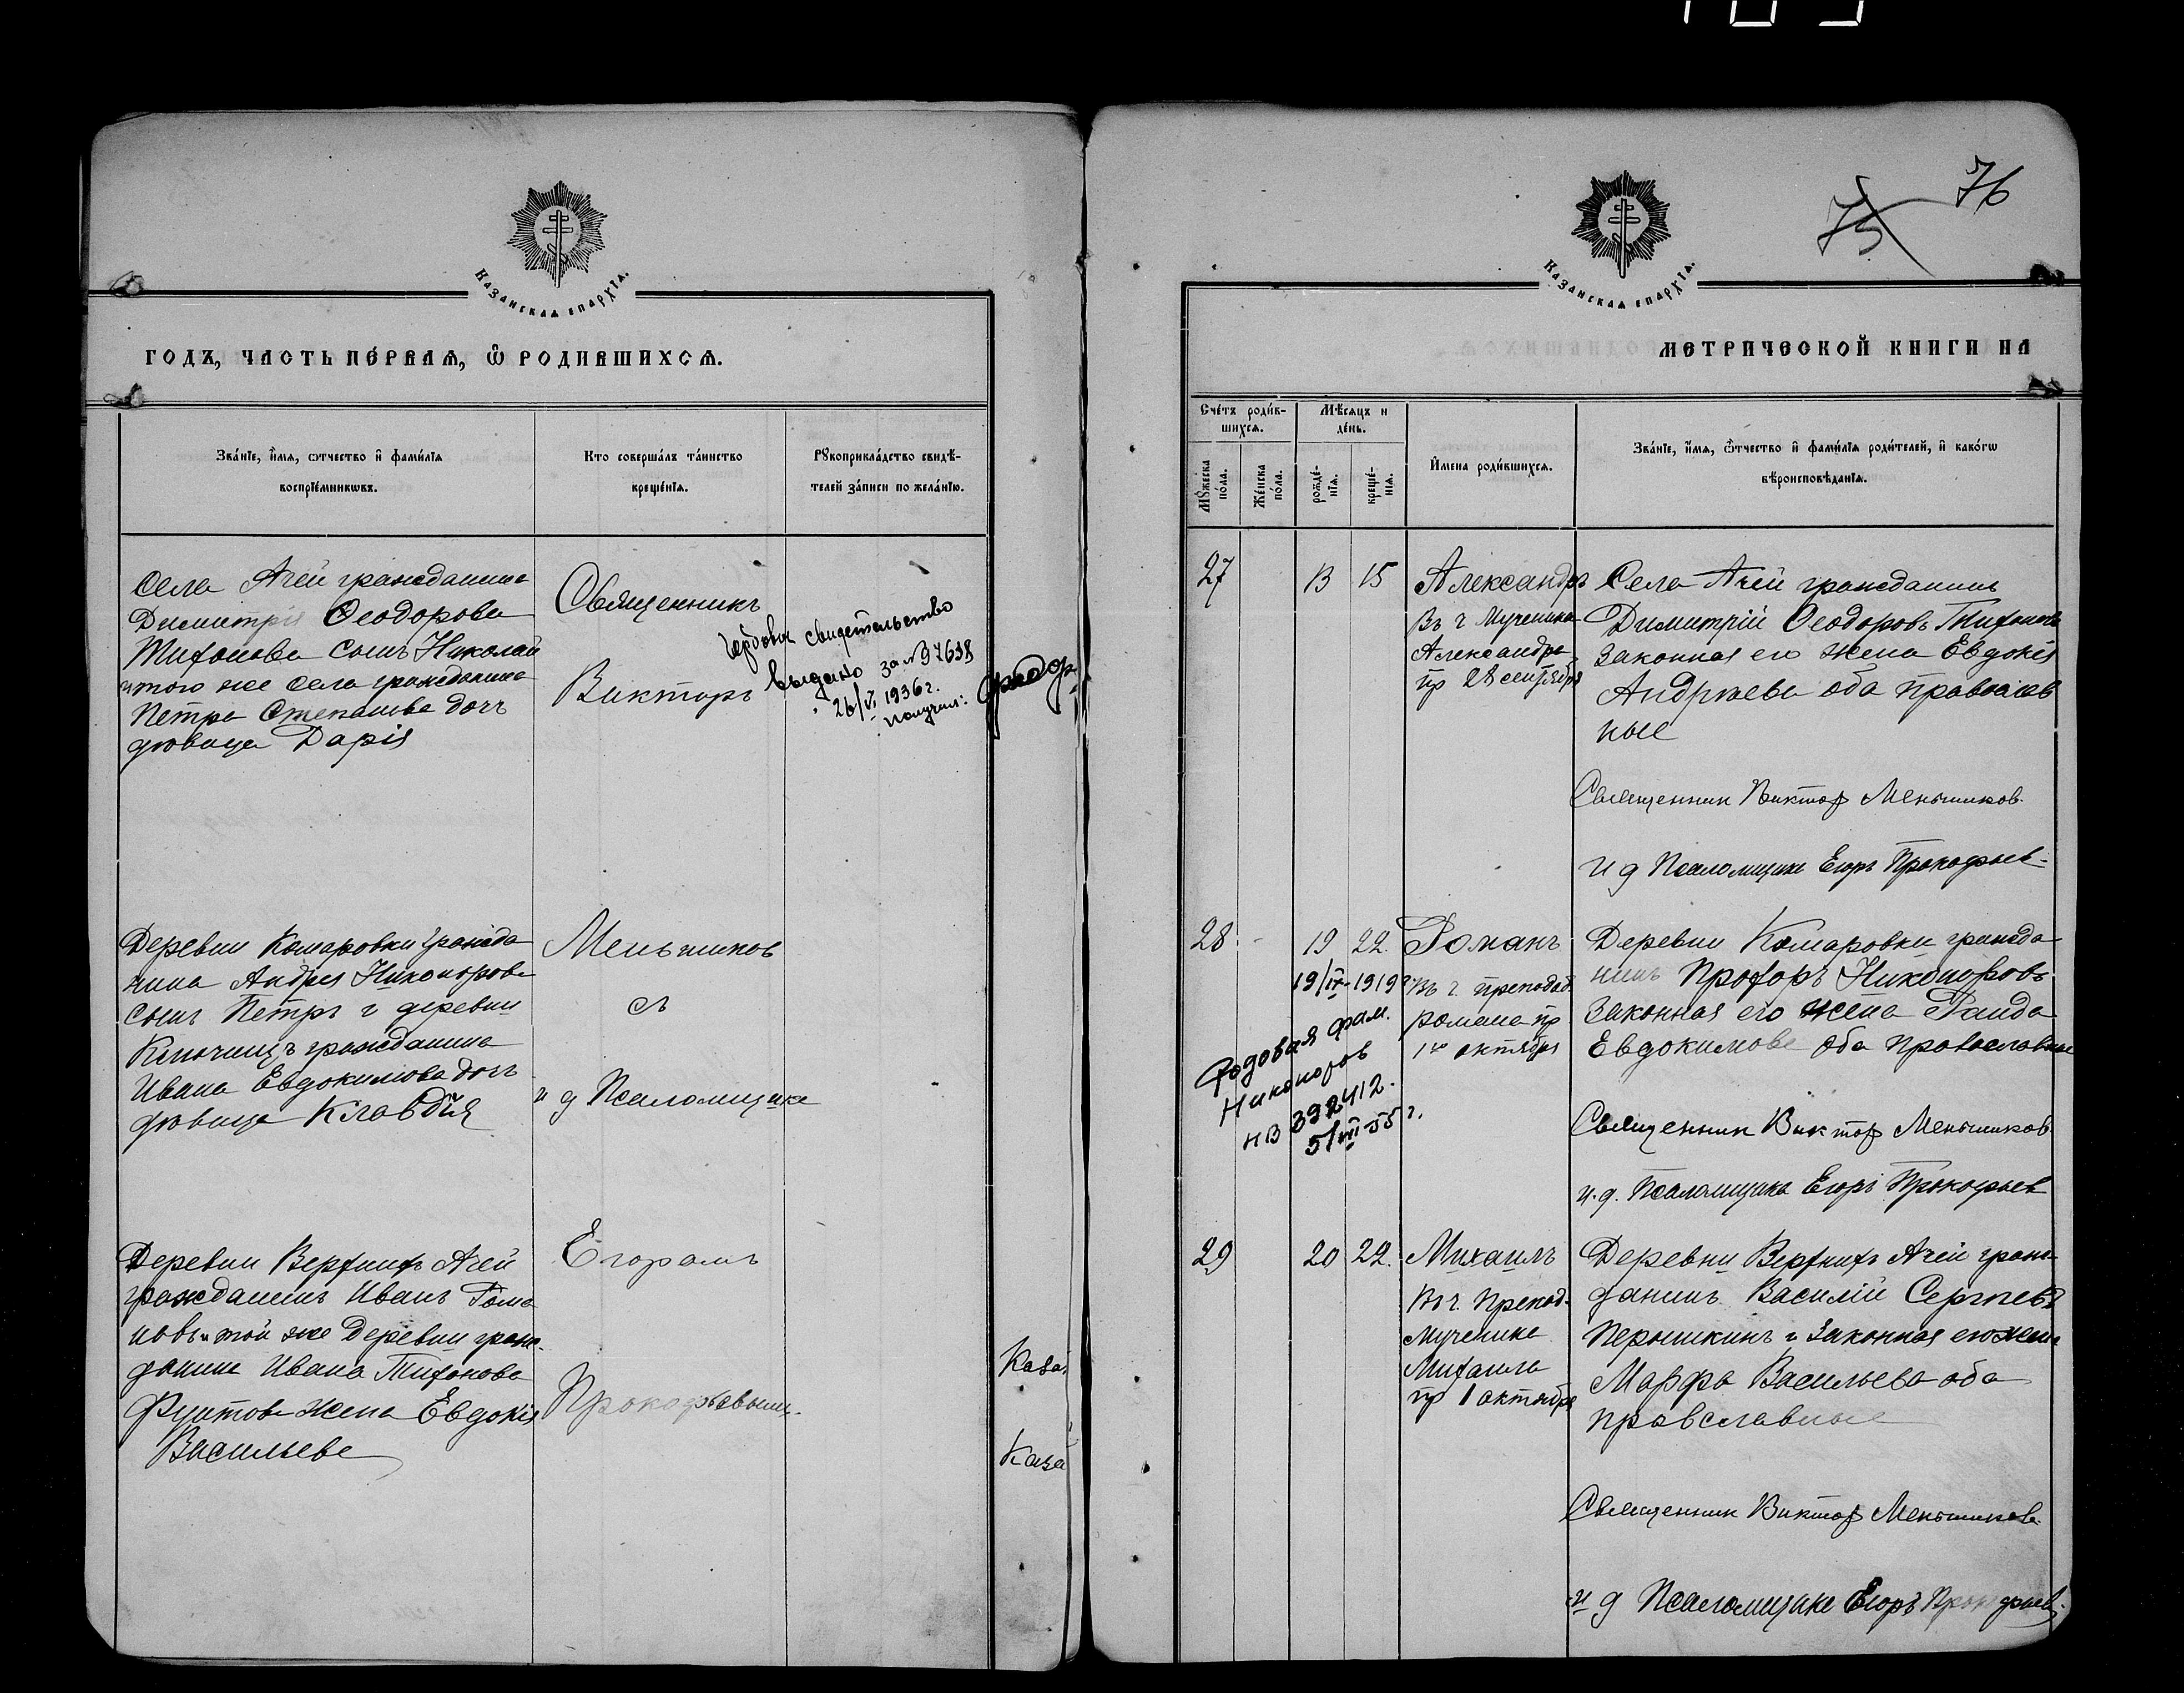 Казанскаѧ епархїѧ.
годъ, часть пе́рваѧ, ѽ родившихсѧ.
Зва́нїе, и҆́мѧ, ѻтчество и҆ фами́лїѧ
воспрїе́мникѡвъ.
Кто соверша́лъ та́инство
креще́нїѧ.
Рꙋкоприкла́дство свидѣ́-
телей за́писи по жела́нїю.
Села Ачей гражданина
Димитрія Ѳеодорова
Тихонова сынъ Николай
и того же села гражданина
Петра Степанова дочь
дѣвица Дарія
Священникъ
Викторъ
свидетельство
выдано за № 37638
26/VI 1936 г.
получил:
Деревни Комаровки гражда
нина Андрея Никонорова
сынъ Петръ и деревни
Ключищъ гражданина
Ивана Евдокимова дочь
дѣвица Клавдія
Меньшиков
съ
и д Псаломщика
Деревни Верхнихъ Ачей
гражданинъ Иванъ Рома
новъ и той же деревни граж-
данина Ивана Тихонова
жена Евдокія
Васильева
Егоромъ
Прокофьевымъ.
Каза
Каза
76
75
Казанскаѧ епархїѧ.
метрической книги на
Сче́тъ роди́в-
шихсѧ.
Мꙋ́жеска
по́ла.
Же́нска
по́ла.
Мѣ́сѧцъ и
де́нь.
рожде́-
нїѧ.
креще́-
нїѧ.
И҆мена роди́вшихсѧ.
Зва́нїе, и҆́мѧ, ѻ҆́тчество и҆ фами́лїѧ роди́телей, и҆ како́гѡ
вѣроисповѣданїѧ.
27 13 15 Александръ
Въ ч Мученика
Александра
пр 28 сентября
Села Ачей гражданинъ
Димитрій Ѳеодоровъ Тихонов
законная его жена Евдокія
Андреева оба православ
ные
Священник Виктор Меньшиков.
И д Псаломщика Егоръ Прокофьев-
28 19 22. Романъ
19/IX-1919 г
Въ ч. преподоб.
романа пр
1го октября
Родовая фам.
Никоноров
НВ 392412.
5/VII-55 г.
Деревни Комаровки гражда
нинъ Прохоръ Никоноровъ
законная его жена Раида
Евдокимова оба православные
Священник Виктор Меньшиков.
и. д. Псаломщика Егоръ Прокофьев
29 20 22. Михаилъ
Въ ч. Препод-
мученика
Михаила
пр 1 октября
Деревни Верхнихъ Ачей граж-
данинъ Василій Сергѣевъ
Перышкинъ и законная его жена
Марфа Васильева оба
православные
Священник Виктор Меньшиков.
и д Псаломщика Егоръ Прокофьев